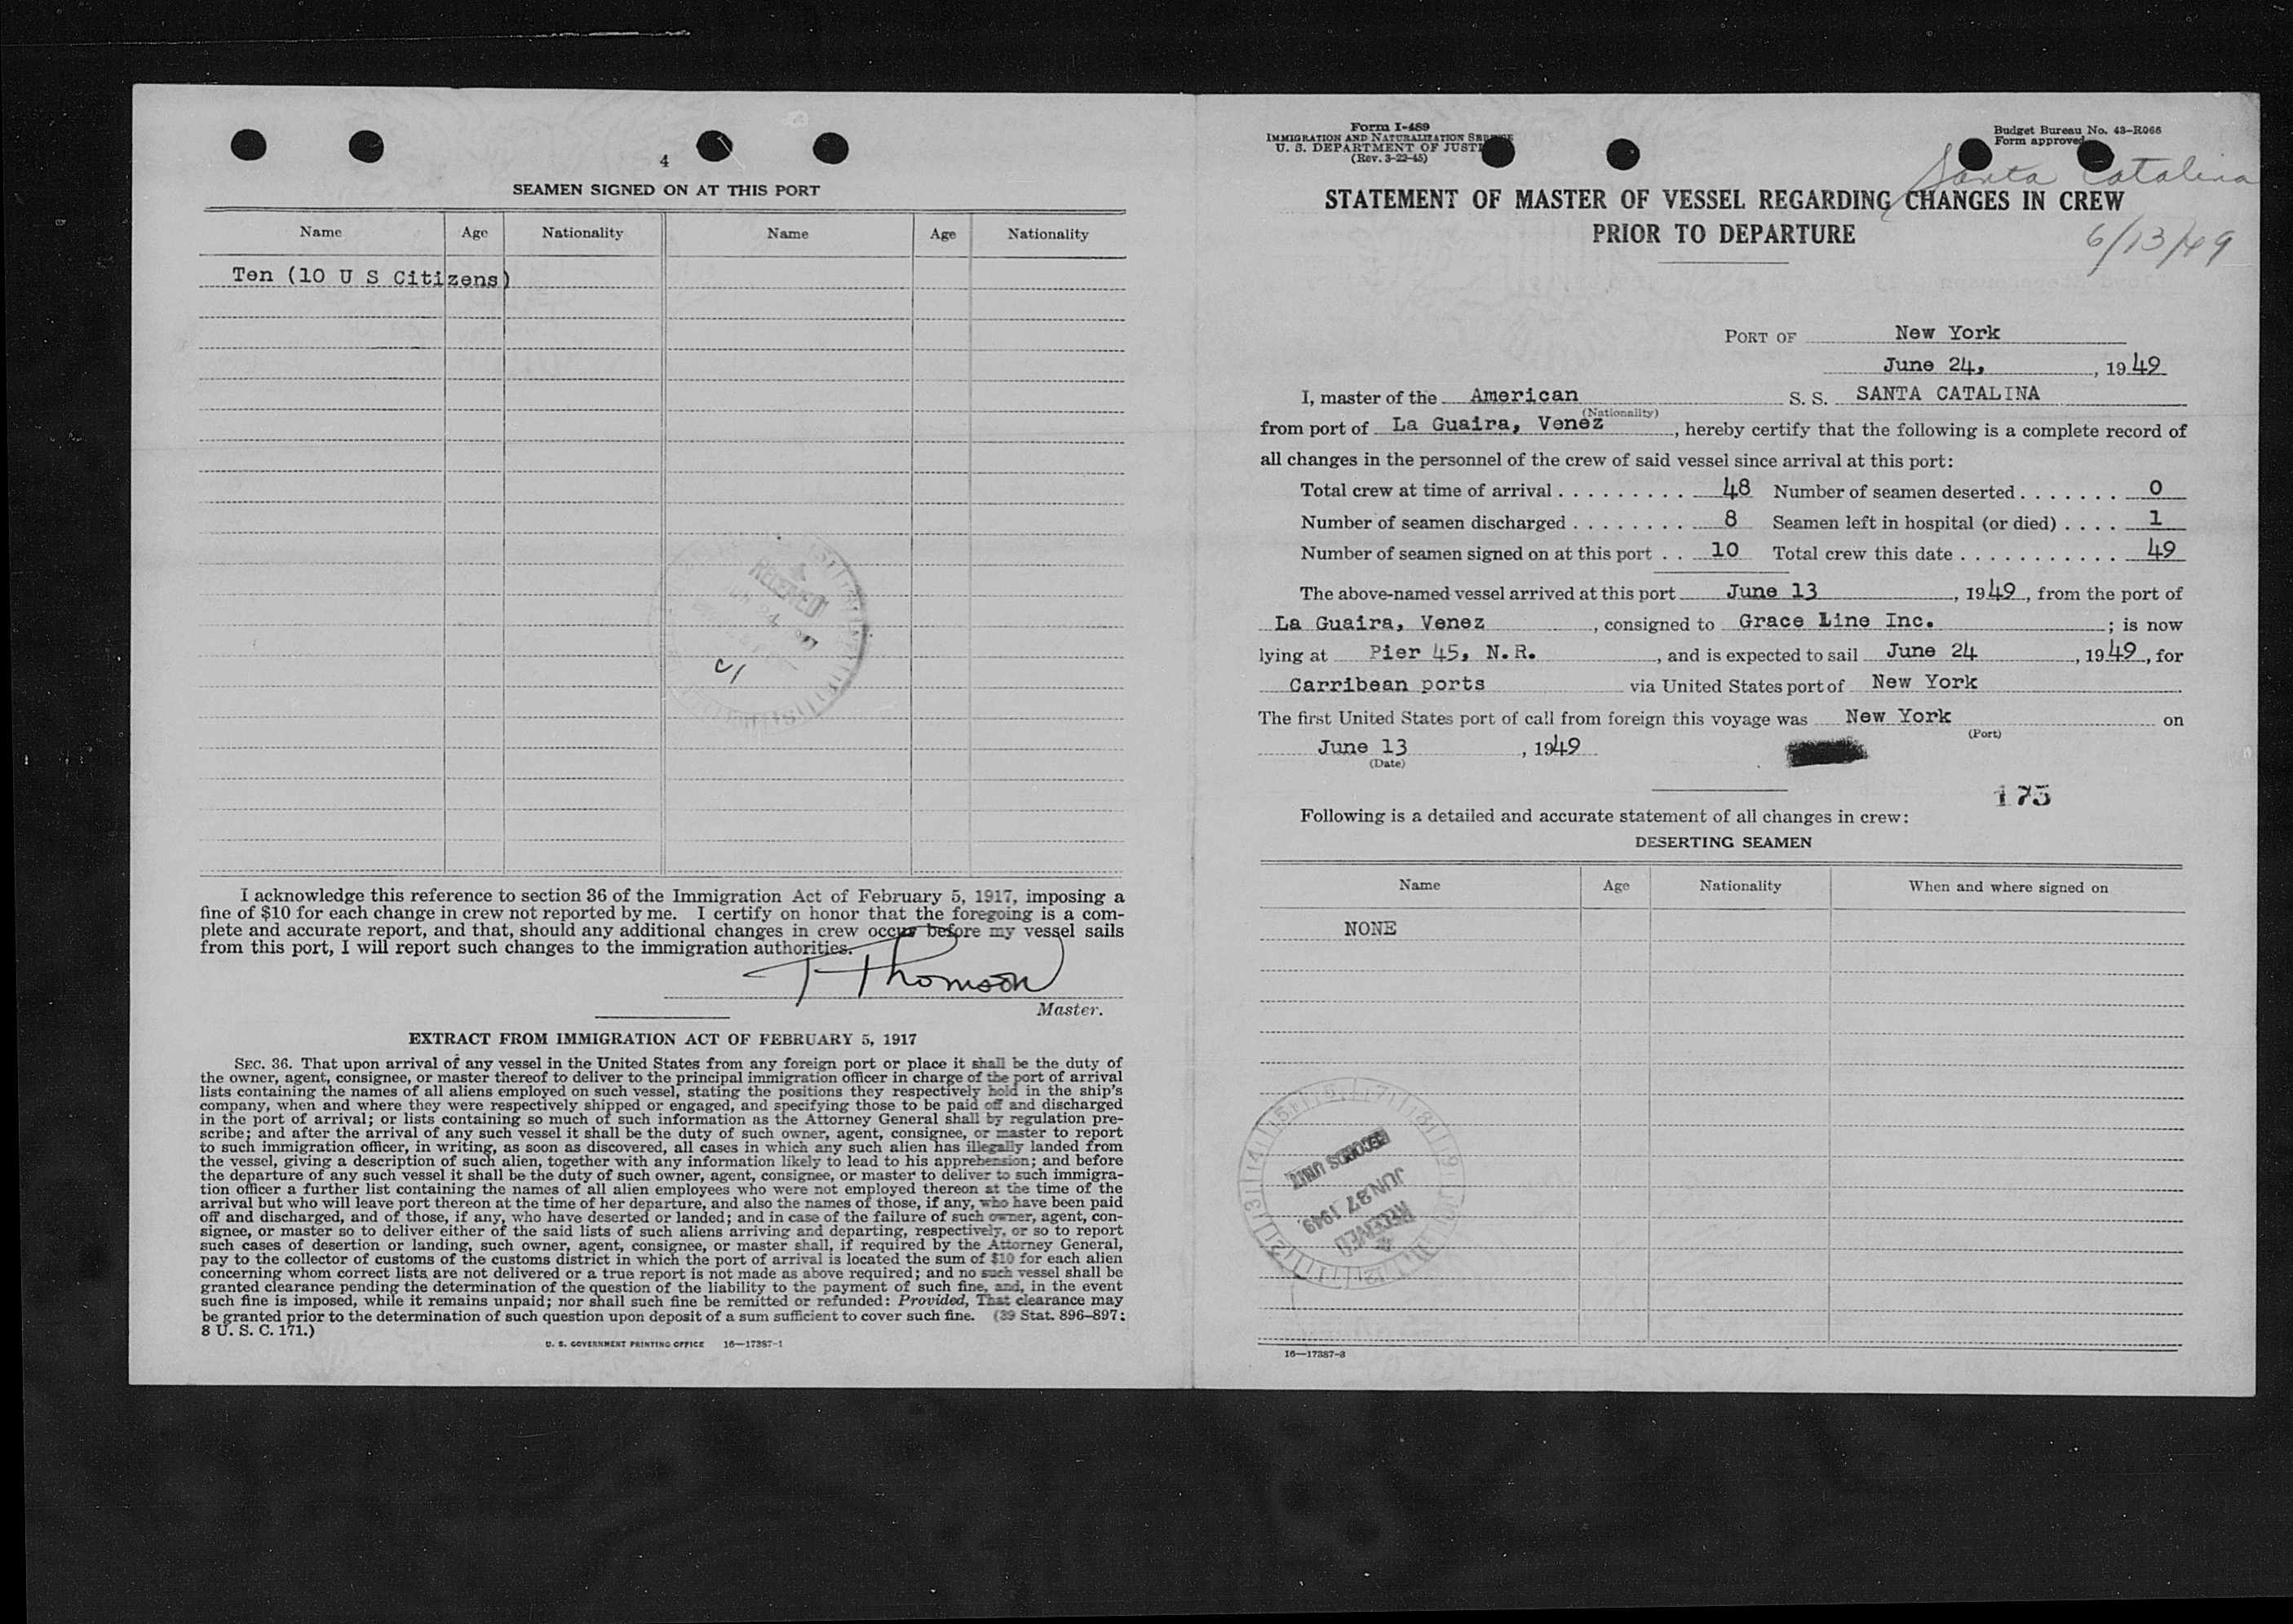 4
SEAMEN SIGNED ON AT THIS PORT
Name Age Nationality Name Age Nationality
Ten (10 U S Citizens)
RECEIVED
I acknowledge this reference to section 36 of the Immigration Act of February 5, 1917, imposing a
fine of $10 for each change in crew not reported by me. I certify on honor that the foregoing is a com-
plete and accurate report, and that, should any additional changes in crew occur before my vessel sails
from this port, I will report such changes to the immigration authorities.
T Thomson
Master.
EXTRACT FROM IMMIGRATION ACT OF FEBRUARY 5, 1917
SEC. 36. That upon arrival of any vessel in the United States from any foreign port or place it shall be the duty of
the owner, agent, consignee, or master thereof to deliver to the principal immigration officer in charge of the port of arrival
lists containing the names of all aliens employed on such vessel, stating the positions they respectively hold in the ship's
company, when and where they were respectively shipped or engaged, and specifying those to be paid off and discharged
in the port of arrival; or lists containing so much of such information as the Attorney General shall by regulation pre-
scribe; and after the arrival of any such vessel it shall be the duty of such owner, agent, consignee, or master to report
to such immigration officer, in writing, as soon as discovered, all cases in which any such alien has illegally landed from
the vessel, giving a description of such alien, together with any information likely to lead to his apprehension; and before
the departure of any such vessel it shall be the duty of such owner, agent, consignee, or master to deliver to such immigra-
tion officer a further list containing the names of all alien employees who were not employed thereon at the time of the
arrival but who will leave port thereon at the time of her departure, and also the names of those, if any, who have been paid
off and discharged, and of those, if any, who have deserted or landed; and in case of the failure of such owner, agent, con-
signee, or master so to deliver either of the said lists of such aliens arriving and departing, respectively, or so to report
such cases of desertion or landing, such owner, agent, consignee, or master shall, if required by the Attorney General,
pay to the collector of customs of the customs district in which the port of arrival is located the sum of $10 for each alien
concerning whom correct lists are not delivered or a true report is not made as above required; and no such vessel shall be
granted clearance pending the determination of the question of the liability to the payment of such fine, and, in the event
such fine is imposed, while it remains unpaid; nor shall such fine be remitted or refunded: Provided, That clearance may
be granted prior to the determination of such question upon deposit of a sum sufficient to cover such fine. (39 Stat. 896–897;
8 U. S. C. 171.)
U. S. GOVERNMENT PRINTING OFFICE 16—17387-1
Form I-489
IMMIGRATION AND NATURALIZATION SERVICE
U. S. DEPARTMENT OF JUSTI
(Rev. 3-22-45)
Budget Bureau No. 43-R066
Form approved
Santa Catalina
STATEMENT OF MASTER OF VESSEL REGARDING CHANGES IN CREW
PRIOR TO DEPARTURE
6/13/49
PORT OF New York
June 24, , 1949
I, master of the American S. S. SANTA CATALINA
(Nationality)
from port of La Guaira, Venez , hereby certify that the following is a complete record of
all changes in the personnel of the crew of said vessel since arrival at this port:
Total crew at time of arrival . . . . . . . . . 48 Number of seamen deserted . . . . . . . 0
Number of seamen discharged . . . . . . . . 8 Seamen left in hospital (or died) . . . . 1
Number of seamen signed on at this port . . 10 Total crew this date . . . . . . . . . . . . 49
The above-named vessel arrived at this port June 13 , 1949 , from the port of
La Guaira, Venez , consigned to Grace Line Inc. ; is now
lying at Pier 45, N.R. , and is expected to sail June 24 , 1949 , for
Carribean ports via United States port of New York
The first United States port of call from foreign this voyage was New York on
(Port)
June 13 , 1949
(Date)
175
Following is a detailed and accurate statement of all changes in crew:
DESERTING SEAMEN
Name Age Nationality When and where signed on
NONE
RECORDS UNIT
JUN 27 1949
RECEIVED
16—17387-3